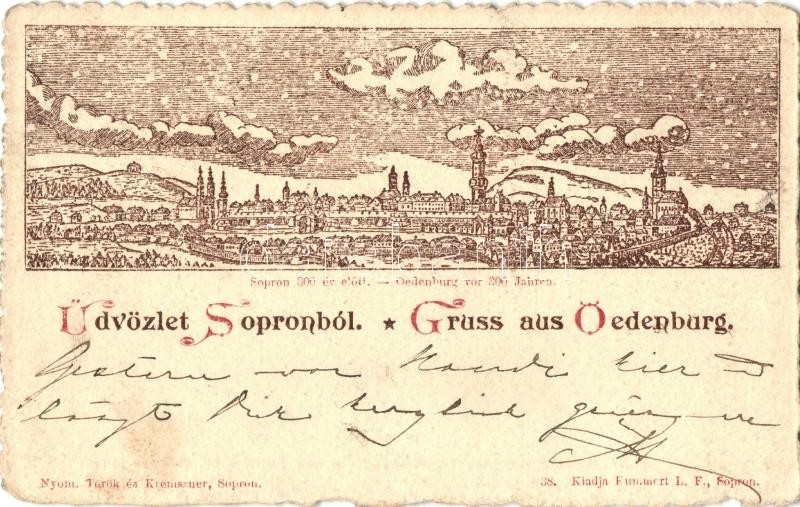 Sopron 300 év előtt. — Oedenburg vor 300 Jahren.
Üdvözlet Sopronból. ★ Gruss aus Öedenburg.
Gestern vor hier
läßt Dich herzlich
Nyom. Török és Kremszner, Sopron. 38. Kiadja Kummert L. F., Sopron.